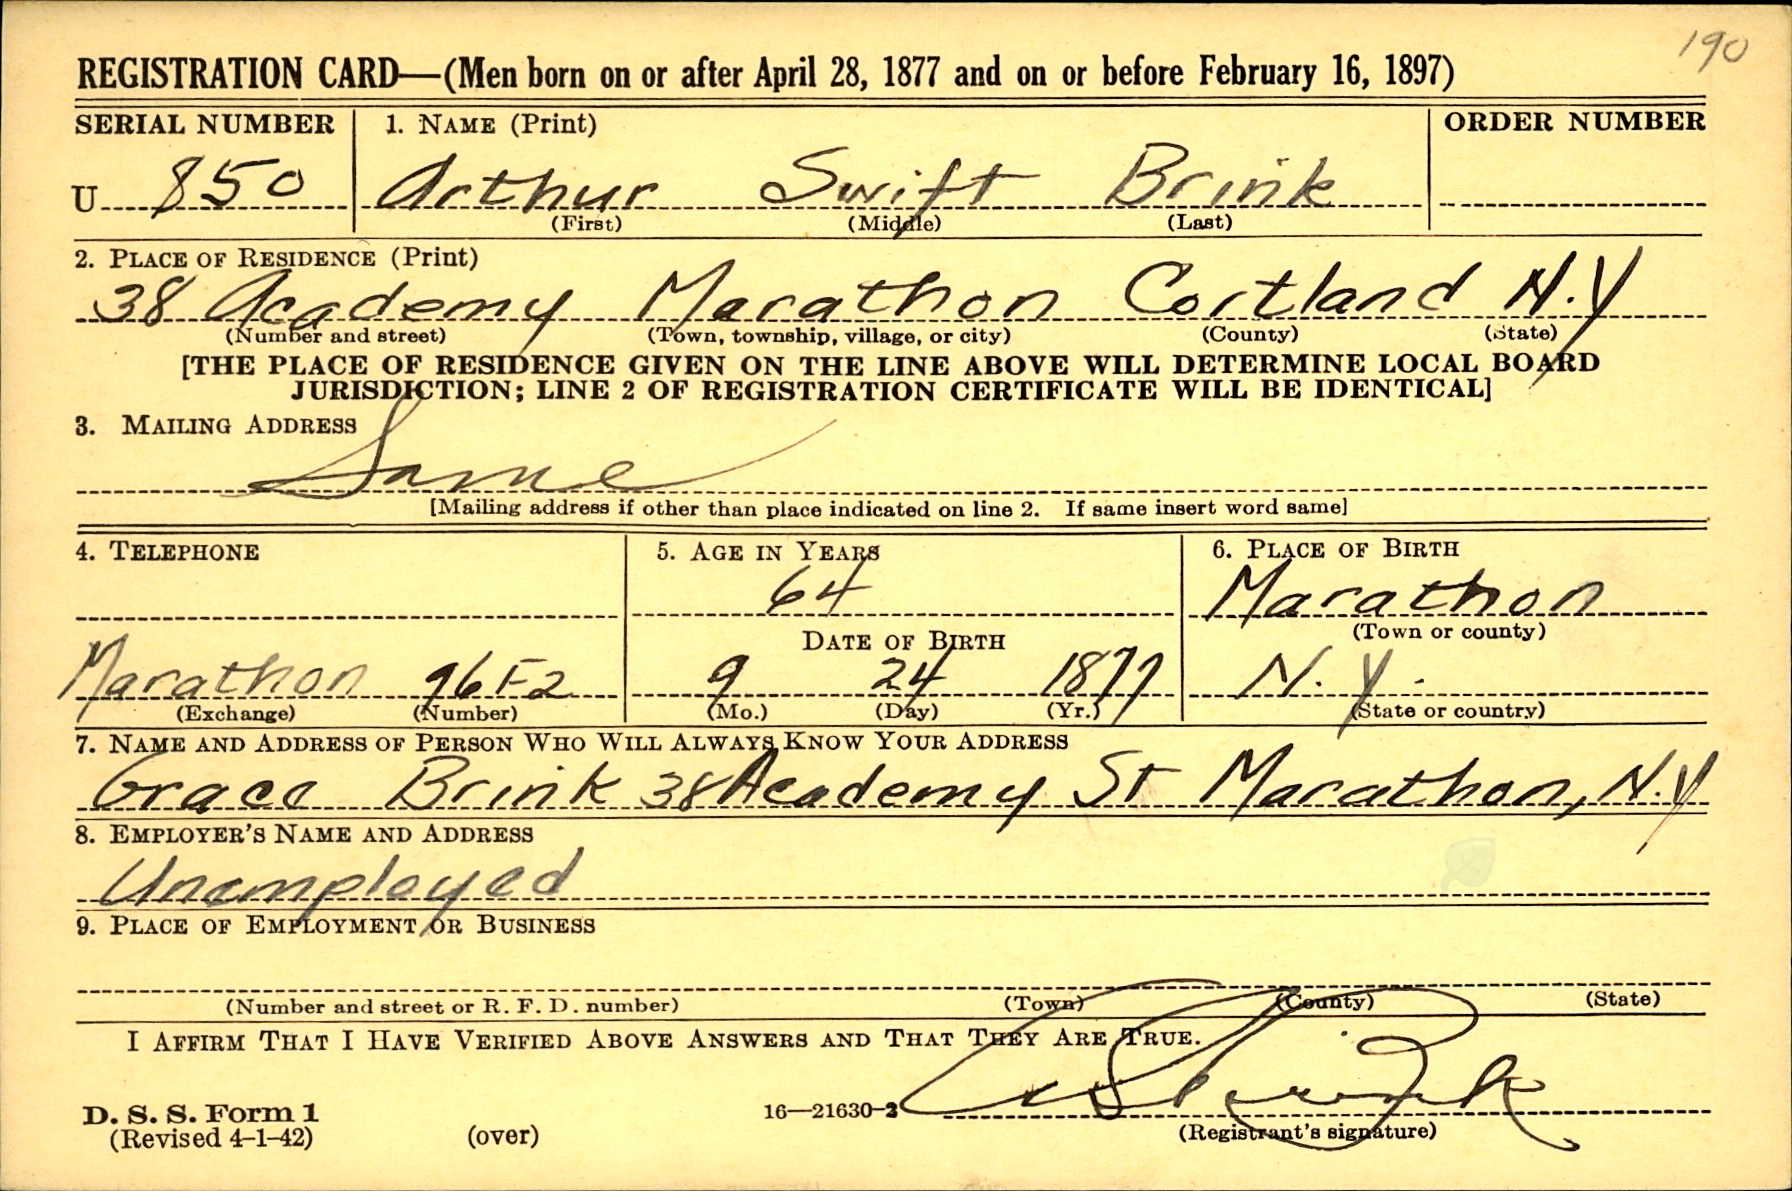 190
REGISTRATION CARD—(Men born on or after April 28, 1877 and on or before February 16, 1897)
SERIAL NUMBER 1. NAME (Print) ORDER NUMBER
U 850 Arthur Swift Brink
(First) (Middle) (Last)
2. PLACE OF RESIDENCE (Print)
38 Academy Marathon Cortland N.Y
(Number and street) (Town, township, village, or city) (County) (State)
[THE PLACE OF RESIDENCE GIVEN ON THE LINE ABOVE WILL DETERMINE LOCAL BOARD
JURISDICTION; LINE 2 OF REGISTRATION CERTIFICATE WILL BE IDENTICAL]
3. MAILING ADDRESS
Same
[Mailing address if other than place indicated on line 2. If same insert word same]
4. TELEPHONE 5. AGE IN YEARS 6. PLACE OF BIRTH
64 Marathon
DATE OF BIRTH (Town or county)
Marathon 96F2 9 24 1877 N.Y.
(Exchange) (Number) (Mo.) (Day) (Yr.) (State or country)
7. NAME AND ADDRESS OF PERSON WHO WILL ALWAYS KNOW YOUR ADDRESS
Grace Brink 38 Academy St Marathon, N.Y
8. EMPLOYER'S NAME AND ADDRESS
Unemployed
9. PLACE OF EMPLOYMENT OR BUSINESS
(Number and street or R. F. D. number) (Town) (County) (State)
I AFFIRM THAT I HAVE VERIFIED ABOVE ANSWERS AND THAT THEY ARE TRUE.
A S Brink
D. S. S. Form 1 16—21630-2
(Revised 4-1-42) (over) (Registrant's signature)